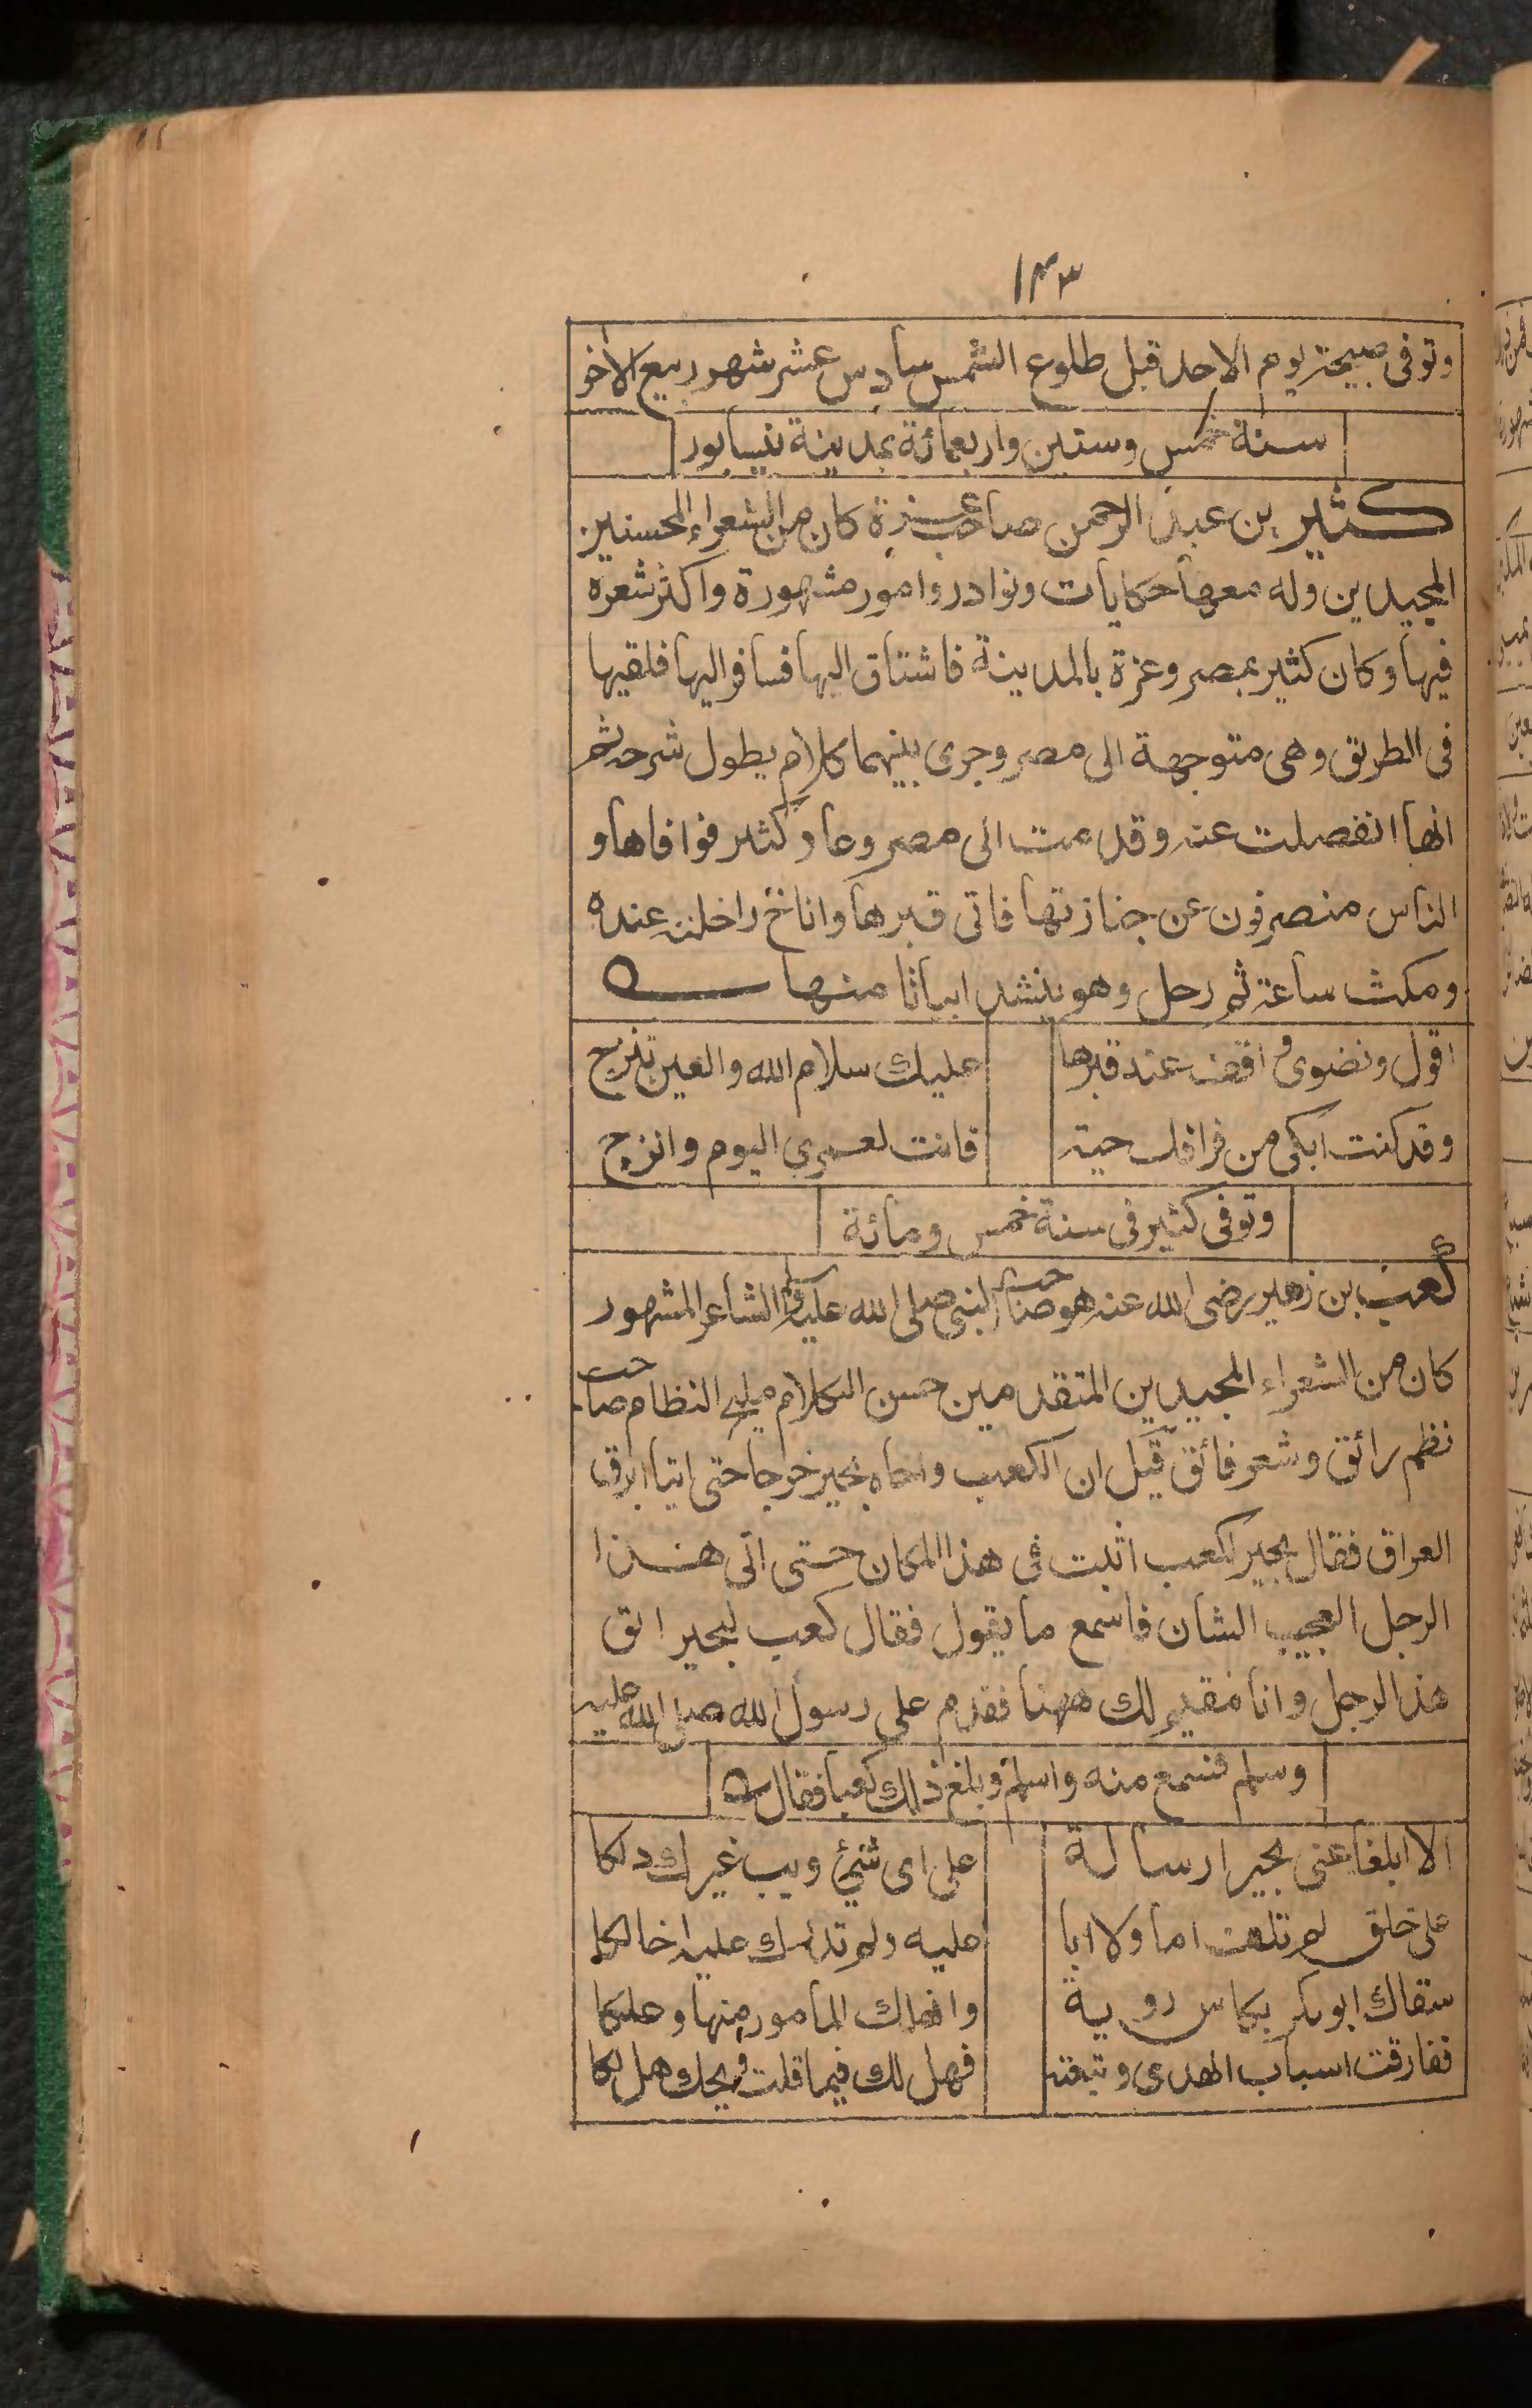 ١٤٣
وتوفى صبيحة يوم الاحد قبل طلوع الشمس سادس عشر شهر ربيع الآخر
سنة خمس وستين واربعمائة بمدينة نيسابور
كثير بن عبد الرحمن صاحب عزة كان من الشعراء المحسنين
المجيدين وله معها حكايات ونوادر وامور مشهورة واكثر شعره
فيها وكان كثير بمصر وعزة بالمدينة فاشتاق اليها فسافر اليها فلقيها
فى الطريق وهى متوجهة الى مصر وجرى بينهما كلام يطول شرحه ثم
انها انفصلت عنه وقدمت الى مصر وعاد كثير فوافاها و
الناس منصرفون عن جنازتها فاتى قبرها واناخ راحلته عنده
ومكث ساعة ثم رحل وهو ينشد ابياتا منها
اقول ونضوى واقف عند قبرها عليك سلام الله والعين تنزح
وقد كنت ابكى من فراقك حية فانت لعمرى اليوم وانزح
وتوفى كثير فى سنة خمس ومائة
كعب بن زهير رضى الله عنه هو صاحب النبى صلى الله عليه الشاعر المشهور
كان من الشعراء المجيدين المتقدمين حسن الكلام مليح النظام صاحب
نظم رائق وشعر فائق قيل ان الكعب واخاه بجير خرجا حتى اتيا ابرق
العراق فقال بجير لكعب اثبت فى هذا المكان حتى اتى هذا
الرجل العجيب الشان فاسمع ما يقول فقال كعب لبجير الق
هذا الرجل وانا مقيم لك ههنا فقدم على رسول الله صلى الله عليه
وسلم فسمع منه واسلم وبلغ ذلك كعبا فقال
الا ابلغا عنى بجيرا رسالة على اى شئ ويب غيرك دلكا
على خلق لم تلف اما ولا ابا عليه ولم تدرك عليه اخا لكا
سقاك ابوبكر بكاس روية وانهلك المامور منها وعلكا
ففارقت اسباب الهدى وتبعته فهل لك فيما قلت ويحك هل لكا